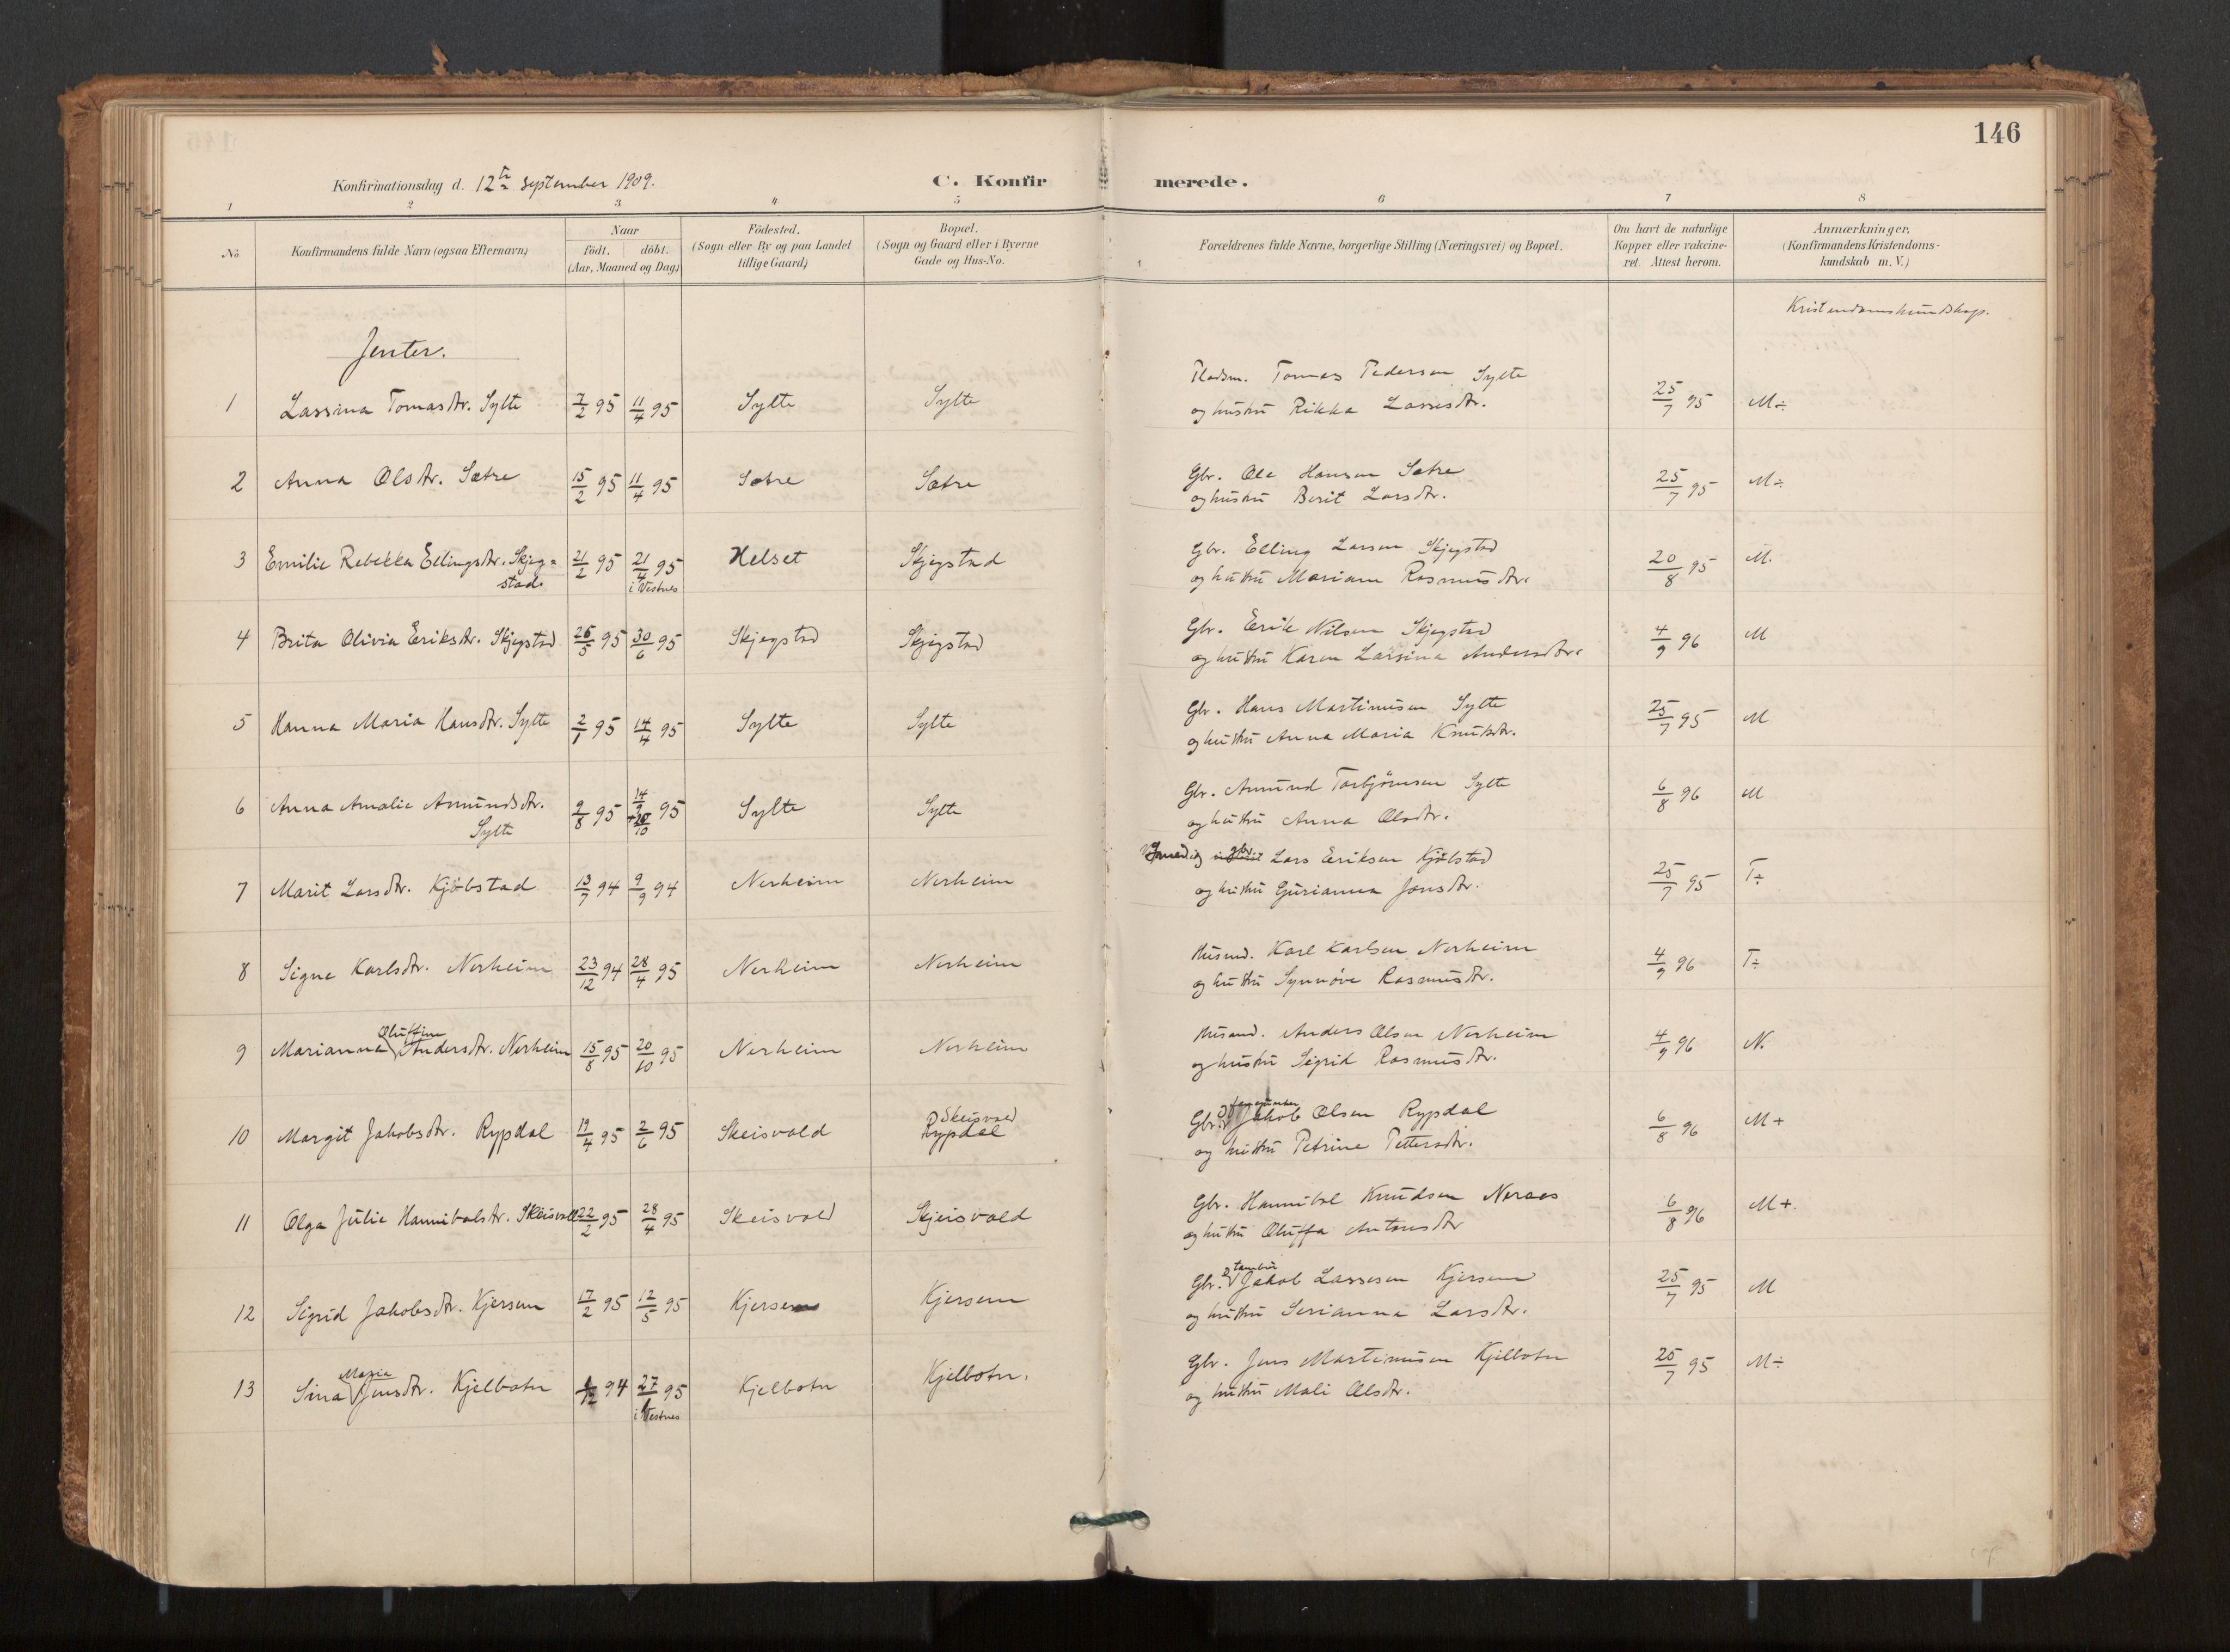 146
Konfirmationsdag d. 12te September 1909.
C. Konfirmerede.
1 2 3 4 5 6 7 8
No
Konfirmandens fulde Navn (ogsaa Efternavn)
Naar
födt. döbt.
(Aar, Maaned og Dag)
Födested.
(Sogn eller By og paa Landet
tillige Gaard)
Bopæl.
(Sogn og Gaard eller i Byerne
Gade og Hus-No.
Forældrenes fulde Navne, borgerlige Stilling (Næringsvei) og Bopæl.
Om havt de naturlige
Kopper eller vakcine-
ret. Attest herom.
Anmærkninger,
(Konfirmandens Kristendoms-
kundskab m. V.)
Kristendomskundskap.
Jenter.
1 Lassina Tomasdtr. Sylte 7/2 95 11/4 95 Sylte Sylte Pladsm. Tomas Pedersen Sylte 25/7 95 M÷
og hustru Rikka Lassesdtr.
2 Anna Olsdtr. Sætre 15/2 95 11/4 95 Sætre Sætre Gbr. Ole Hansen Sætre 25/7 95 M÷
og hustru Berit Larsdtr.
3 Emilie Rebekka Ellingsdtr. Skjeg= 21/2 95 21/4 95 Helset Skjegstad Gbr. Elling Larsen Skjegstad 20/8 95 M.
stad. i Vestnes og hustru Mariane Rasmusdtr.
4 Brita Olivia Eriksdtr. Skjegstad 26/5 95 30/6 95 Skjegstad Skjegstad Gbr. Erik Nilsen Skjegstad 4/9 96 M
og hustru Karen Larsina Andersdtr.
5 Hanna Maria Hansdtr. Sylte 2/1 95 14/4 95 Sylte Sylte Gbr. Hans Martinusen Sylte 25/7 95 M
og hustru Anna Maria Knutsdtr.
6 Anna Amalie Amundsdtr. 9/8 95 14/9 + 20/10 95 Sylte Sylte Gbr. Amund Torbjörnsen Sylte 6/8 96 M
Sylte og hustru Anna Olsdtr.
7 Marit Larsdtr. Kjöbstad 13/7 94 9/9 94 Nerheim Nerheim Smed og gbr. Lars Eriksen Kjöbstad 25/7 95 T÷
og hustru Gurianna Jonsdtr.
8 Signe Karlsdtr. Nerheim 23/12 94 28/4 95 Nerheim Nerheim Husmd. Karl Karlsen Nerheim 4/9 96 T÷
og hustru Synnöve Rasmusdtr.
9 Marianna Oluffine Andersdtr. Nerheim 15/8 95 20/10 95 Nerheim Nerheim Husmd. Anders Olsen Nerheim 4/9 96 N.
og hustru Sigrid Rasmusdtr.
10 Margit Jakobsdtr. Rypdal 19/4 95 2/6 95 Skeisvold Skeisvold Rypdal Gbr. Jakob Olsen Rypdal 6/8 96 M+
og hustru Petrine Pettersdtr.
11 Olga Julie Hannibalsdtr. Skeisvold 22/2 95 28/4 95 Skeisvold Skjeisvold Gbr. Hannibal Knudsen Neraas 6/8 96 M+.
og hustru Oluffa Antonsdtr
12 Sigrid Jakobsdtr. Kjersem 17/2 95 12/5 95 Kjersem Kjersem Gbr. Jakob Lassesen Kjersem 25/7 95 M
og hustru Serianna Larsdtr.
13 Sina Maria Jensdtr. Kjelbotn /12 94 27/ 95 Kjelbotn Kjelbotn. Gbr. Jens Martinusen Kjelbotn 25/7 95 M÷
i Vestnes og hustru Mali Olsdtr.